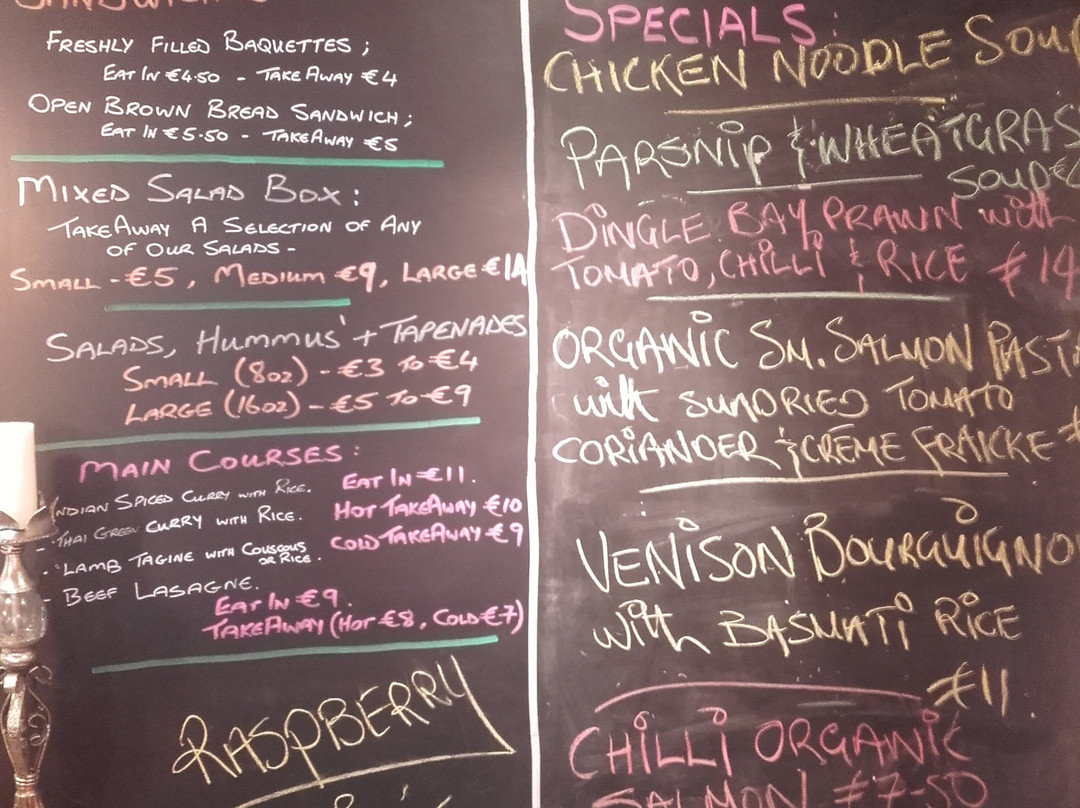 SANDWICHES
FRESHLY FILLED BAQUETTES;
EAT IN €4.50 - TAKEAWAY €4
OPEN BROWN BREAD SANDWICH;
EAT IN €5.50 - TAKEAWAY €5
MIXED SALAD BOX:
TAKEAWAY A SELECTION OF ANY
OF OUR SALADS -
SMALL - €5, MEDIUM €9, LARGE €14
SALADS, HUMMUS' + TAPENADES
SMALL (8oz) - €3 to €4
LARGE (16oz) - €5 TO €9
MAIN COURSES:
EAT IN €11.
- INDIAN SPICED CURRY WITH RICE.
HOT TAKEAWAY €10
- THAI GREEN CURRY WITH RICE.
COLD TAKEAWAY €9
- LAMB TAGINE WITH COUSCOUS
OR RICE.
- BEEF LASAGNE.
EAT IN €9.
TAKEAWAY (HOT €8, COLD €7)
RASPBERRY
SPECIALS:
CHICKEN NOODLE SOUP
PARSNIP & WHEATGRAS
SOUP €
DINGLE BAY PRAWN with
TOMATO, CHILLI & RICE €14
ORGANIC SM. SALMON PASTA
with SUNDRIED TOMATO
CORIANDER & CRÈME FRAICKE €
VENISON BOURGUIGNO
with BASMATI RICE
€11.
CHILLI ORGANIC
SALMON €7.50